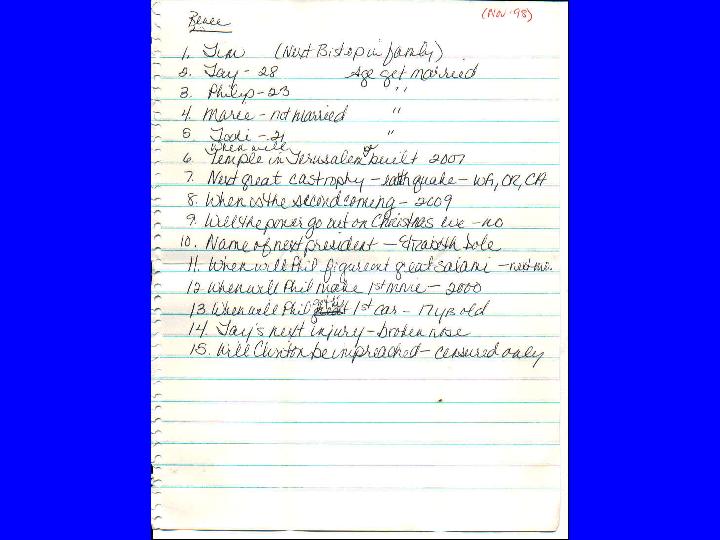 Renee
(Nov-98)
1. Jim (Next Bishop in family)
2. Jay - 28 Age get married
3. Philip - 23 "
4. Maree - not married "
5. Jodi - 21 "
When will
6. Temple in Jerusalem be built 2007
7. Next great castrophy - earthquake - WA, OR, CA
8. When is the second coming - 2009
9. Will the power go out on Christmas eve - no
10. Name of next president - Elizabeth Dole
11. When will Phil figure out great salami - next mo.
12. When will Phil make 1st movie - 2000
13. When will Phil get 1st car - 17 yr old
14. Jay's next injury - broken nose
15. Will Clinton be impreached - censured only